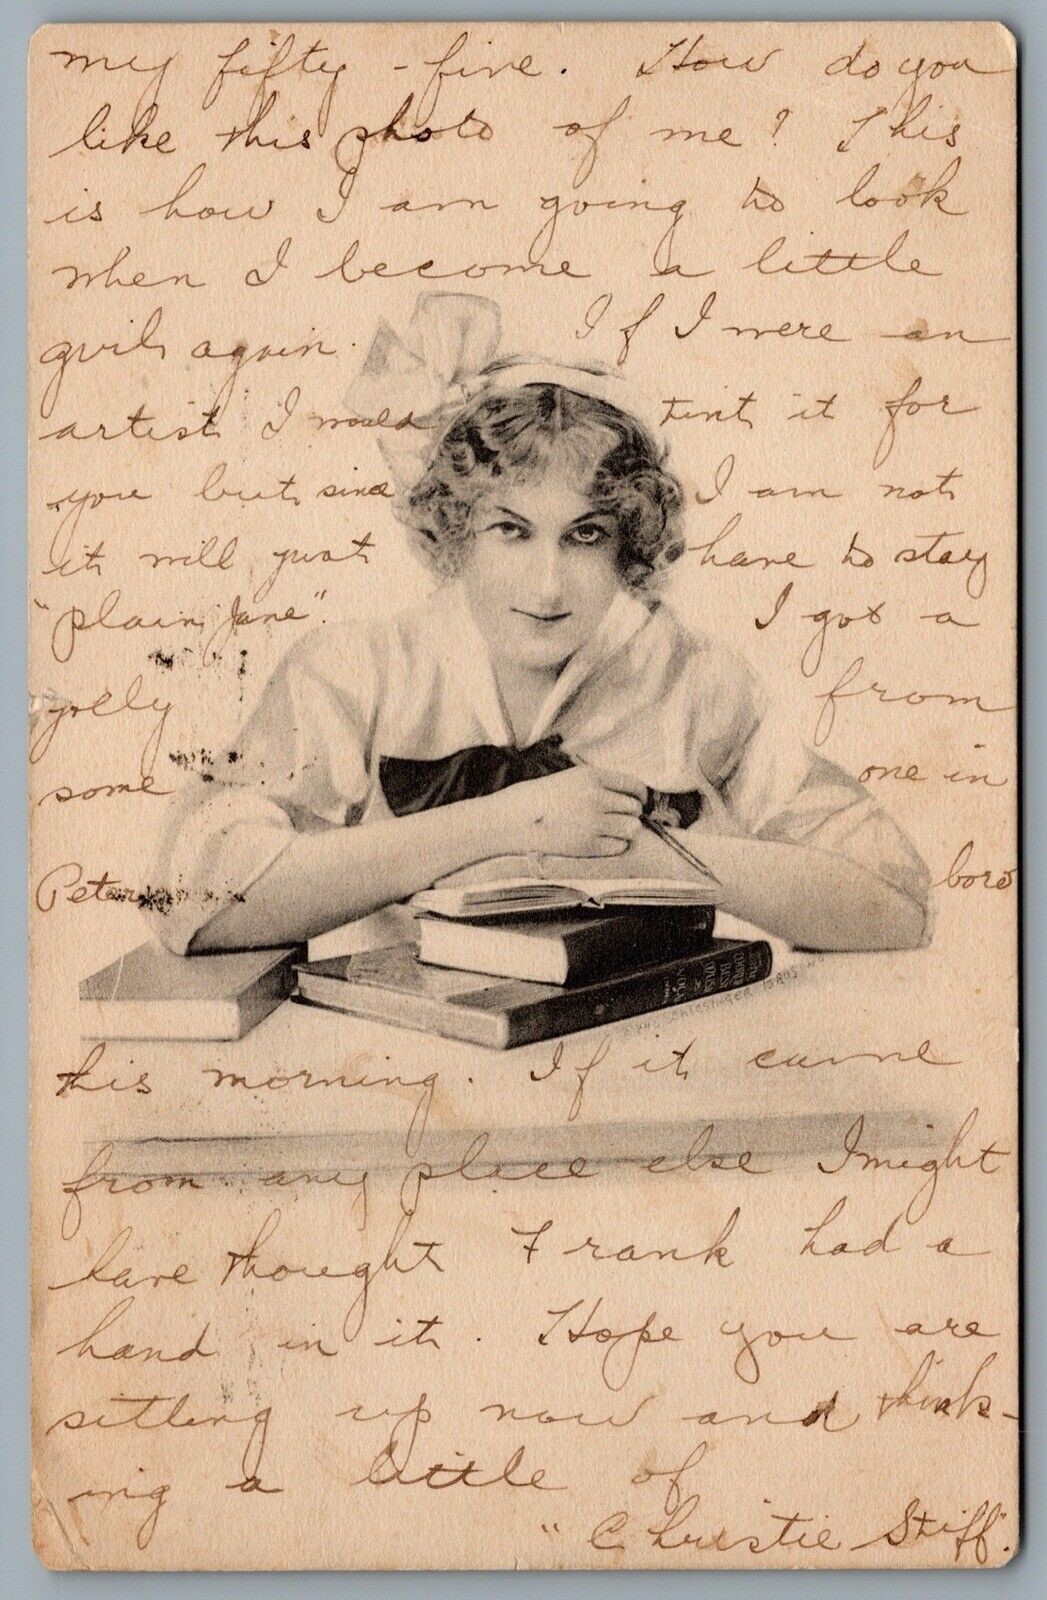 my fifty-five. How do you
like this photo of me? This
is how I am going to look
when I become a little
girl again. If I were an
artist I would tint it for
you but since I am not
it will just have to stay
"plain Jane". I got a
jolly from
some one in
Peter boro
this morning. If it came
from any place else I might
have thought Frank had a
hand in it. Hope you are
sitting up now and think-
ing a little of
"Christie Stiff".
Schlesinger Bros